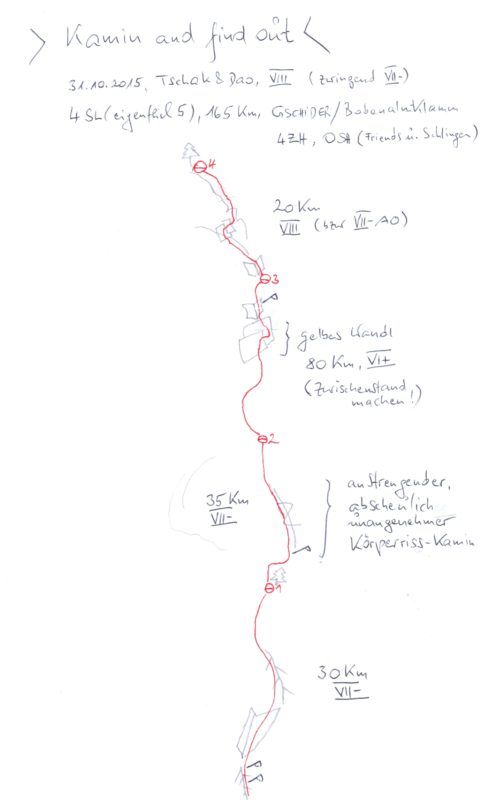 > Kamin and find out <
31.10.2015, Tschak & Dao, VIII (zwingend VII-)
4 SL (eigentlich 5), 165 Km, GSCHIDER/Bobenalmklamm
4ZH, OSH (Friends u. Schlingen)
4
20 Km
VIII (bzw VII- A0)
3
gelbes Wandl
80 Km, VI+
(Zwischenstand
machen!)
2
35 Km
VII-
anstrengender,
abscheulich
unangenehmer
Körperriss-Kamin
1
30 Km
VII-